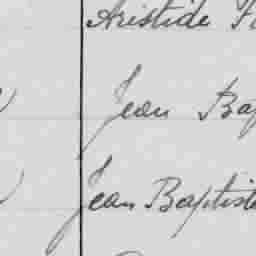 Aristide
Jean Bap
Jean Baptiste